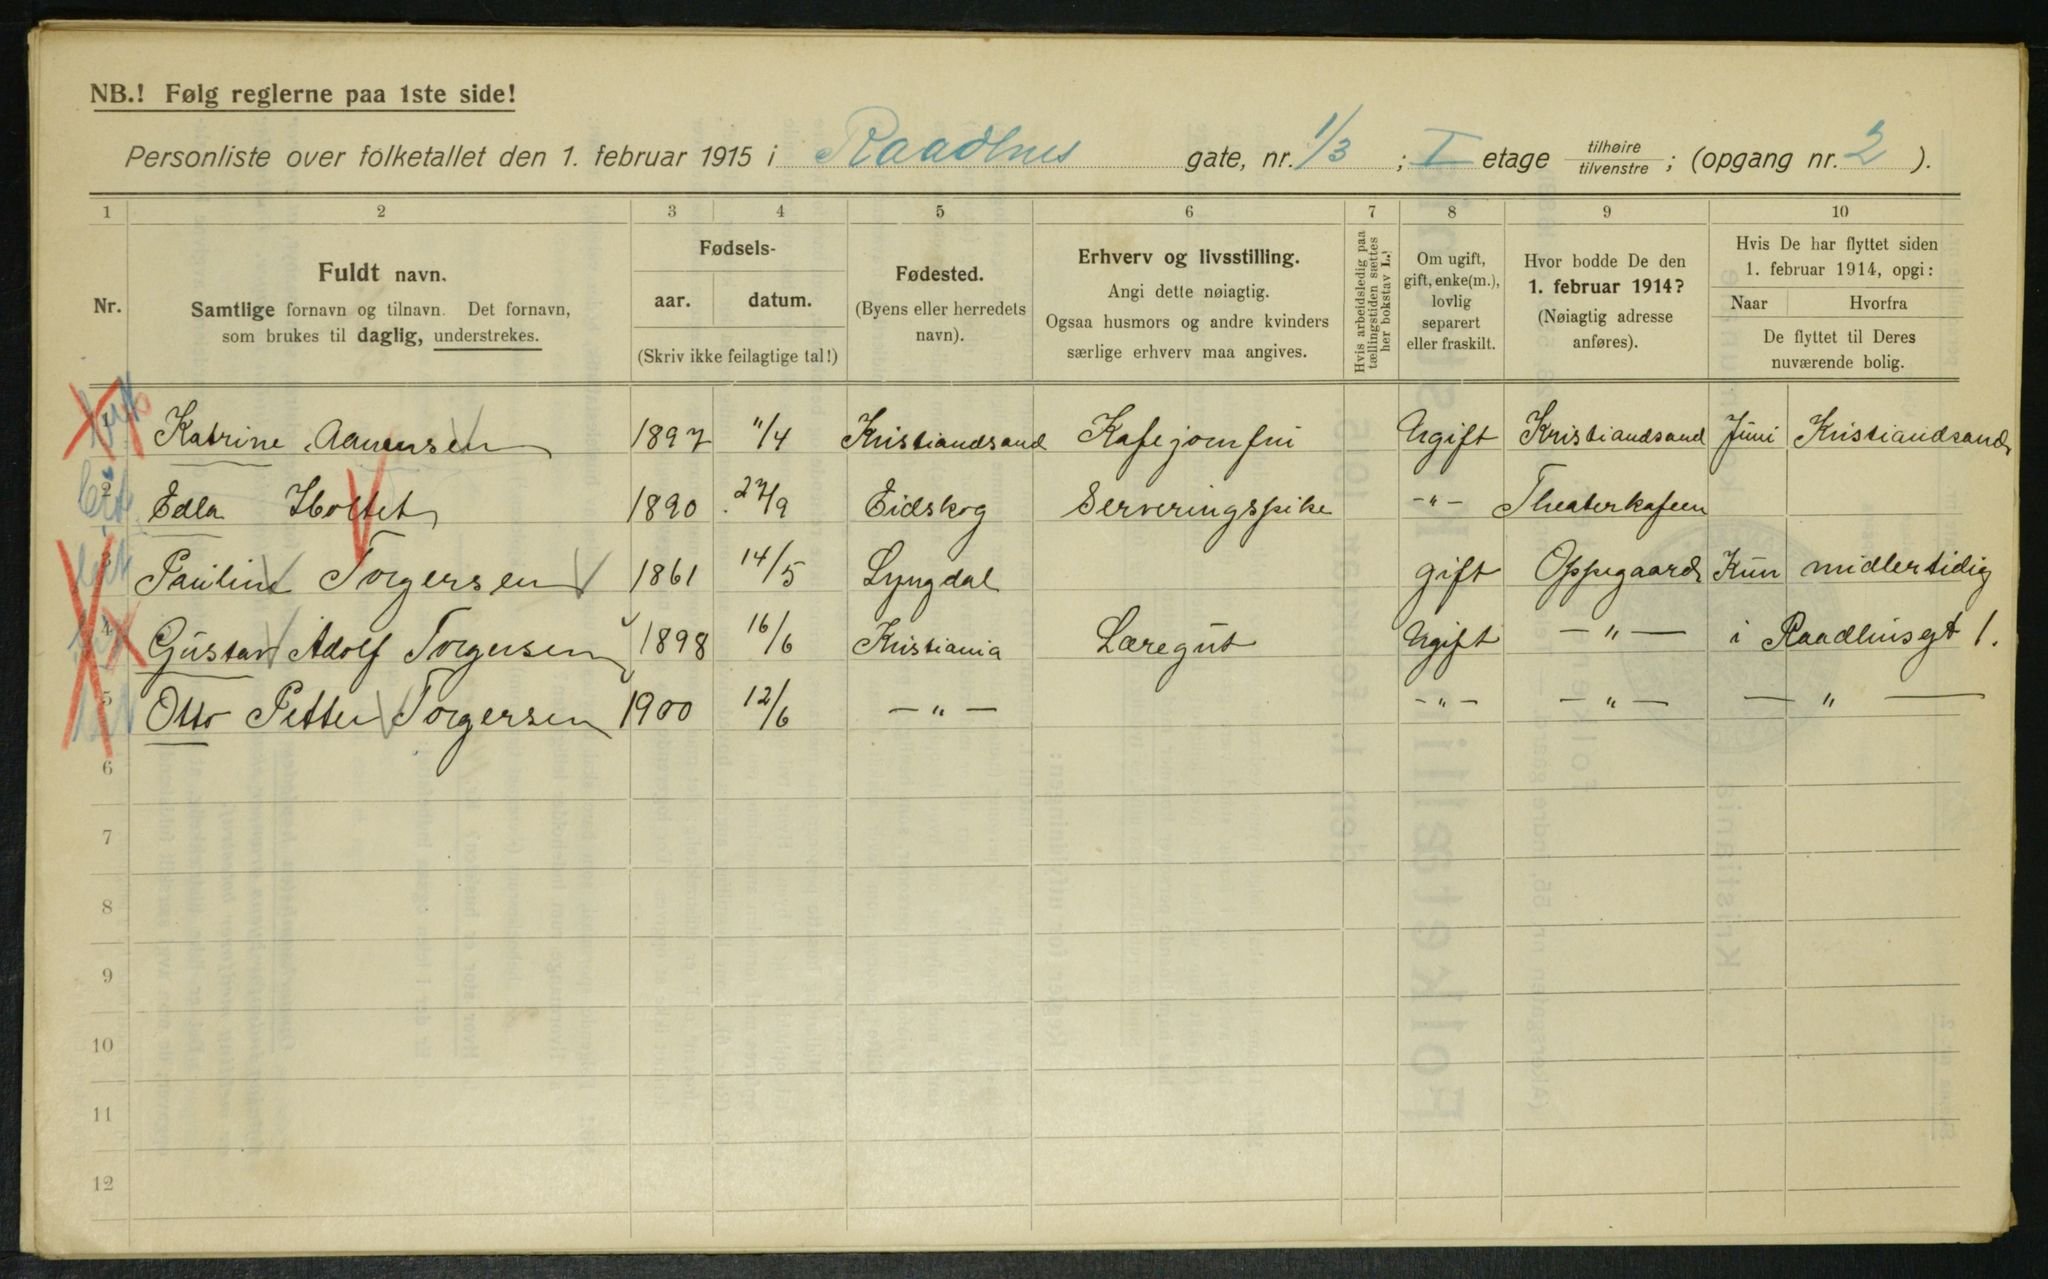 NB.! Følg reglerne paa 1ste side!
Personliste over folketallet den 1. februar 1915 i Raadhus gate, nr. 1/3 ; I etage tilhøire tilvenstre ; (opgang nr. 2 ).
1 2 3 4 5 6 7 8 9 10
Nr.
Fuldt navn.
Samtlige fornavn og tilnavn. Det fornavn,
som brukes til daglig, understrekes.
Fødsels-
aar. datum.
(Skriv ikke feilagtige tal!)
Fødested.
(Byens eller herredets
navn).
Erhverv og livsstilling.
Angi dette nøiagtig.
Ogsaa husmors og andre kvinders
særlige erhverv maa angives.
Hvis arbeidsledig paa
tællingstiden sættes
her bokstav L.!
Om ugift,
gift, enke(m.),
lovlig
separert
eller fraskilt.
Hvor bodde De den
1. februar 1914?
(Nøiagtig adresse
anføres).
Hvis De har flyttet siden
1. februar 1914, opgi:
Naar Hvorfra
De flyttet til Deres
nuværende bolig.
1 Katrine 1897 11/4 Kristiandsand Kafejomfru Ugift Kristiandsand Juni Kristiandsand
2 Edla Holtet 1890 27/9 Eidskog Serveringspike -"- Theaterkafeen
3 Pauline Torgersen 1861 14/5 Lyngdal gift Oppegaard Kun midlertidig
4 Gustav Adolf Torgersen 1898 16/6 Kristiania Læregut Ugift -"- i Raadhusgt 1.
5 Otto Petter Torgersen 1900 12/6 -"- -"- -"- -"-
6
7
8
9
10
11
12